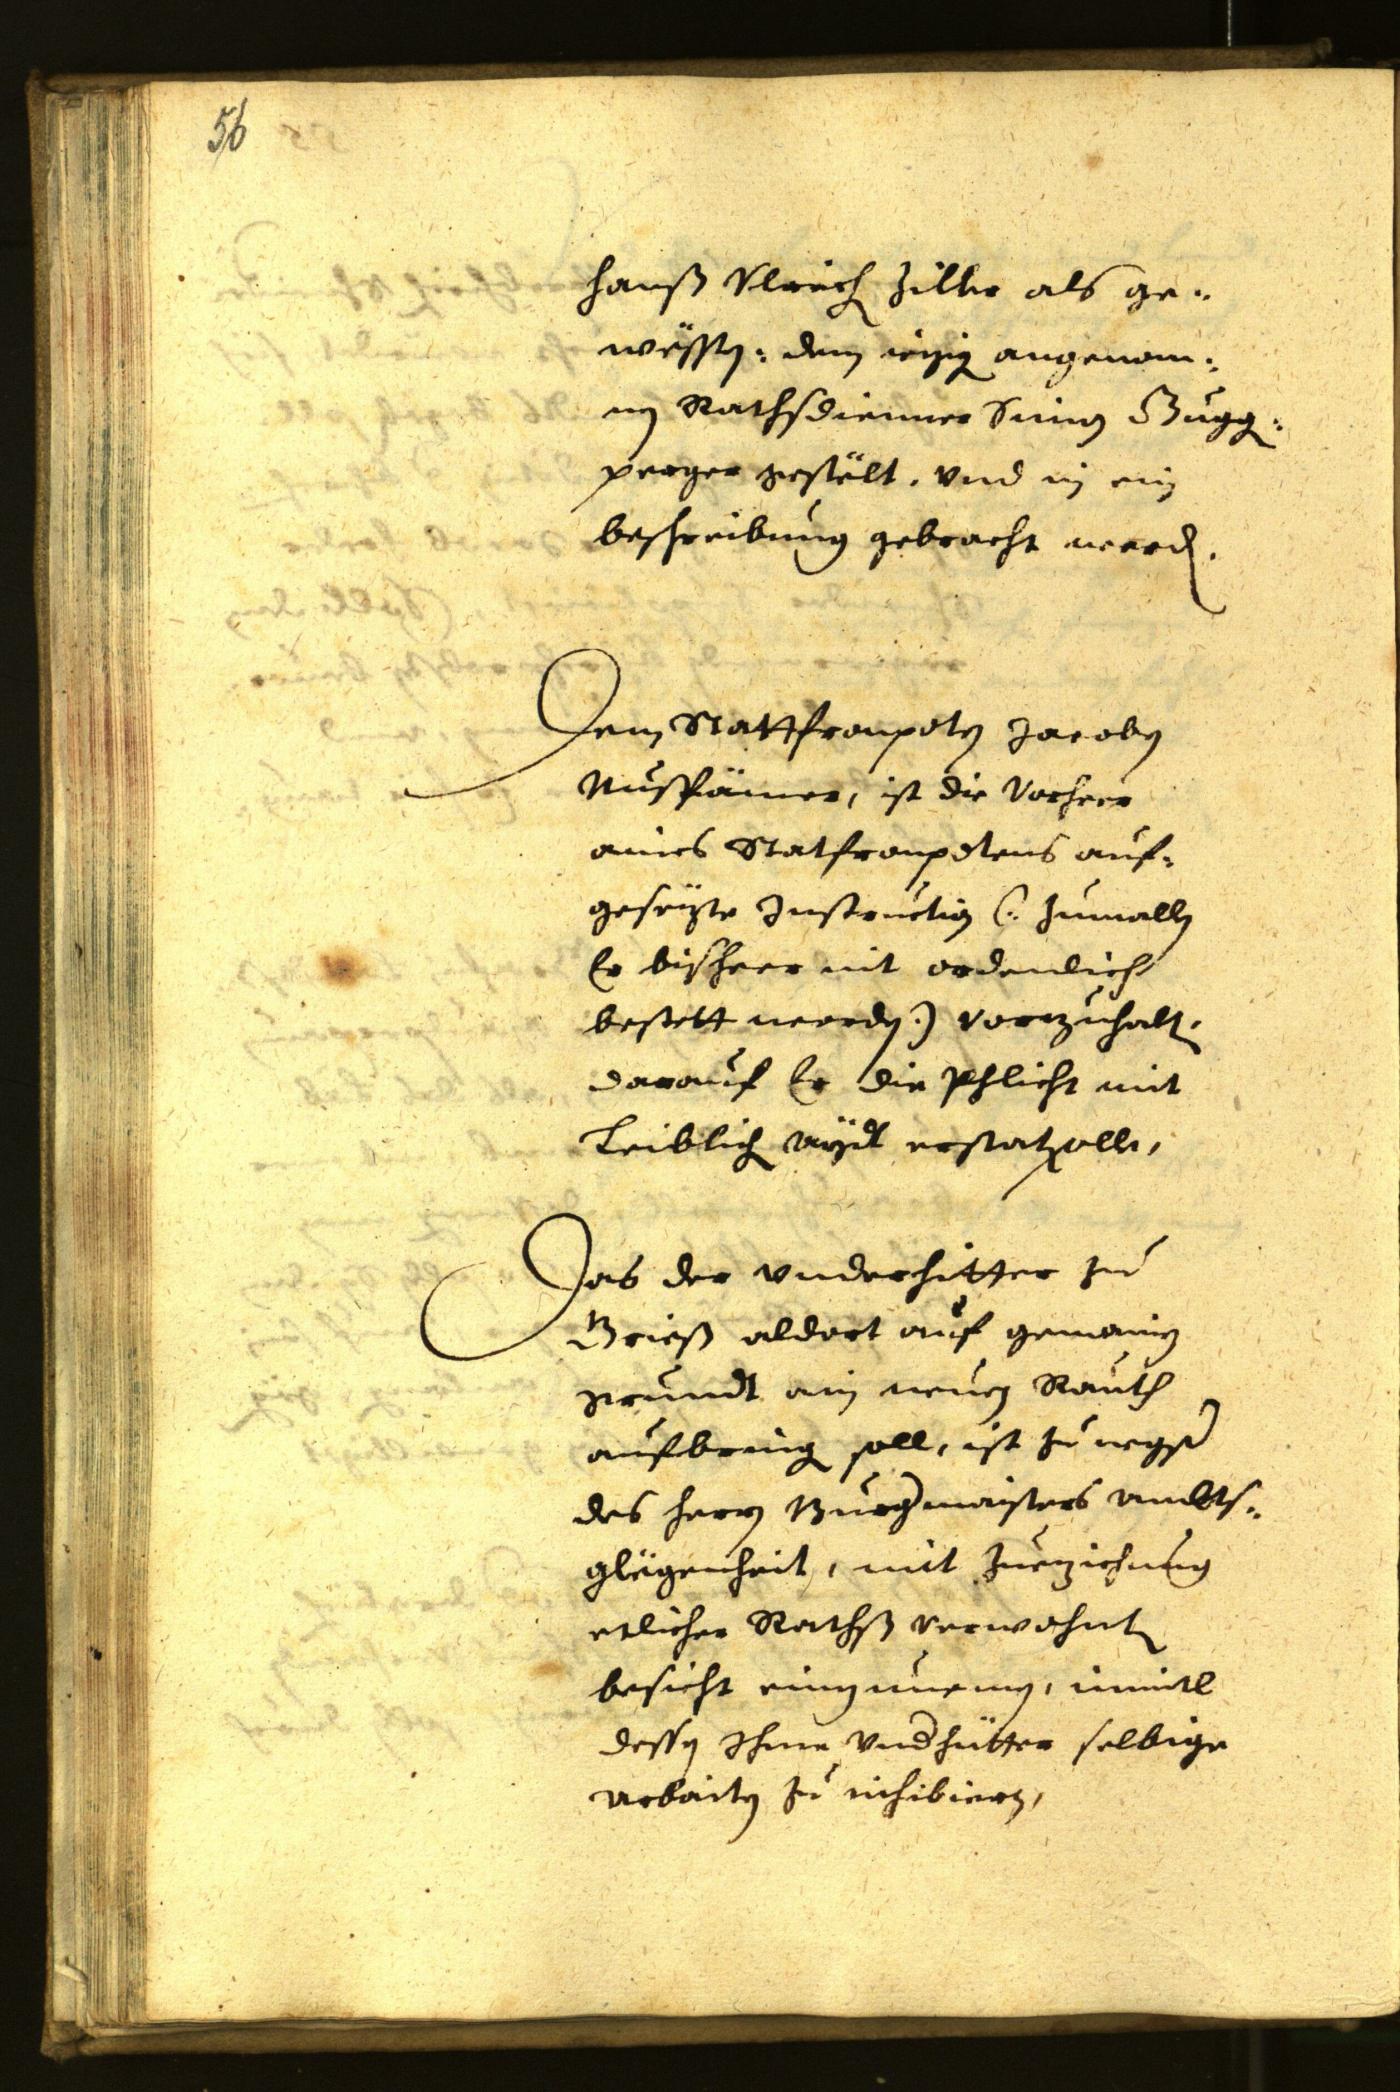 56
hanß Vlrich Ziller als ge-
wëssten: dem ieyig angenom-
nen Rathsdienner Simon Gugg-
perger gestëlt, vnd in ein
beschreibung gebracht werden.
Dem Stattfronpoten Jacoben
Nuspämer, ist die vorheer
aines Statfronpotens auf-
gesëzte Instruction (: zumallen
Er bissheer nit ordenlich
bestelt worden:) vorzuhalten,
darauf Er die Phlicht mit
Leiblich aydt erstatt solle,
Das der vnderhitter zu
Grieß aldort auf gemainen
grundt ain neuen Rauth
aufbring soll, ist zu negst
des herrn Burgermaisters ambts-
glëgenheit, mit zueziehung
etlicher Rathß verwohnten
besicht einzunemen, inmitl
dessen Ihme vnderhütter selbige
arbaiten zu inhibiern,